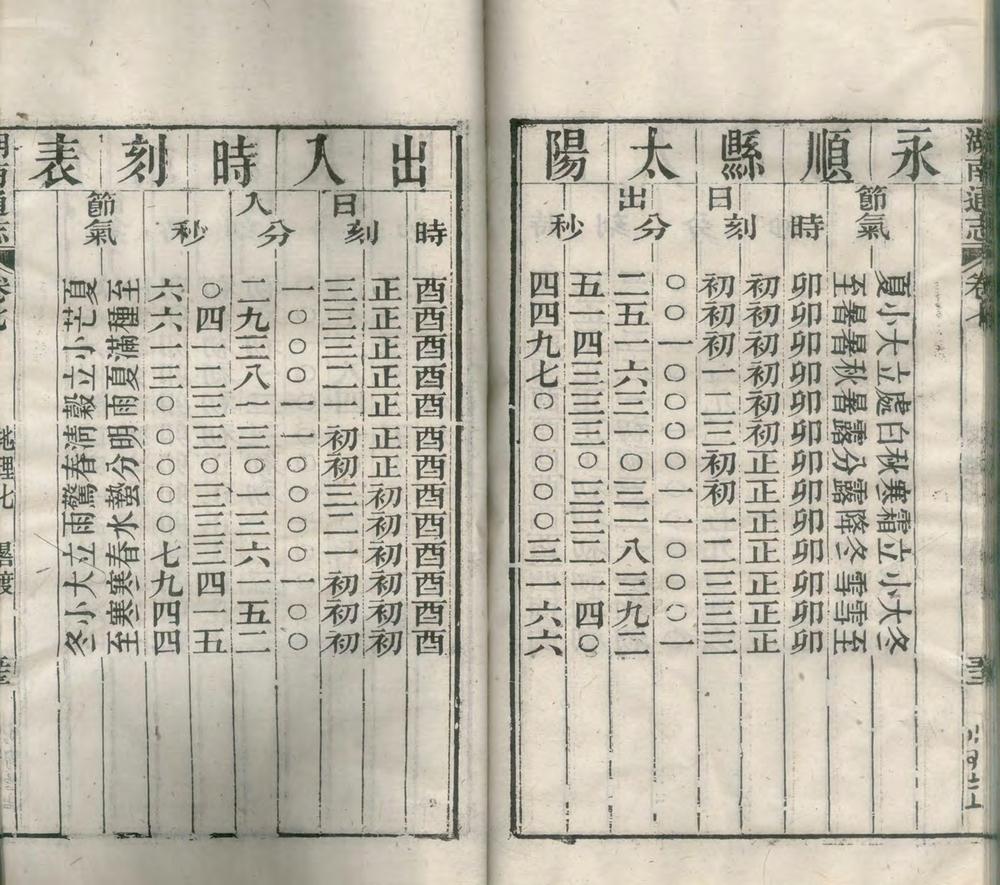 湖南通志
卷七
永順縣太陽
節氣
日出
時
刻
分
秒
夏小大立處白秋寒霜立小大冬
至暑暑秋暑露分露降冬雪雪至
卯卯卯卯卯卯卯卯卯卯卯卯卯
初初初初初初正正正正正正正
初初初一二三初初一二三三三
○○一○○○○一一○○○一
二五一六三一○三一八三九二
五一四三三三○三三二一四○
四四九七○○○○○三一六六
出入時刻表
日入
時
刻
分
秒
節氣
酉酉酉酉酉酉酉酉酉酉酉酉酉
正正正正正正正初初初初初初
三三三二一初初三二一初初初
一○○○一一○○○○一○○
二九三八一三○一三六一五二
○四一二三三○三三三四一五
六六一三○○○○○七九四四
至種滿夏雨明分蟄水春寒寒至
夏芒小立穀清春驚雨立大小冬
湖南通志
卷七
地理七
晷度